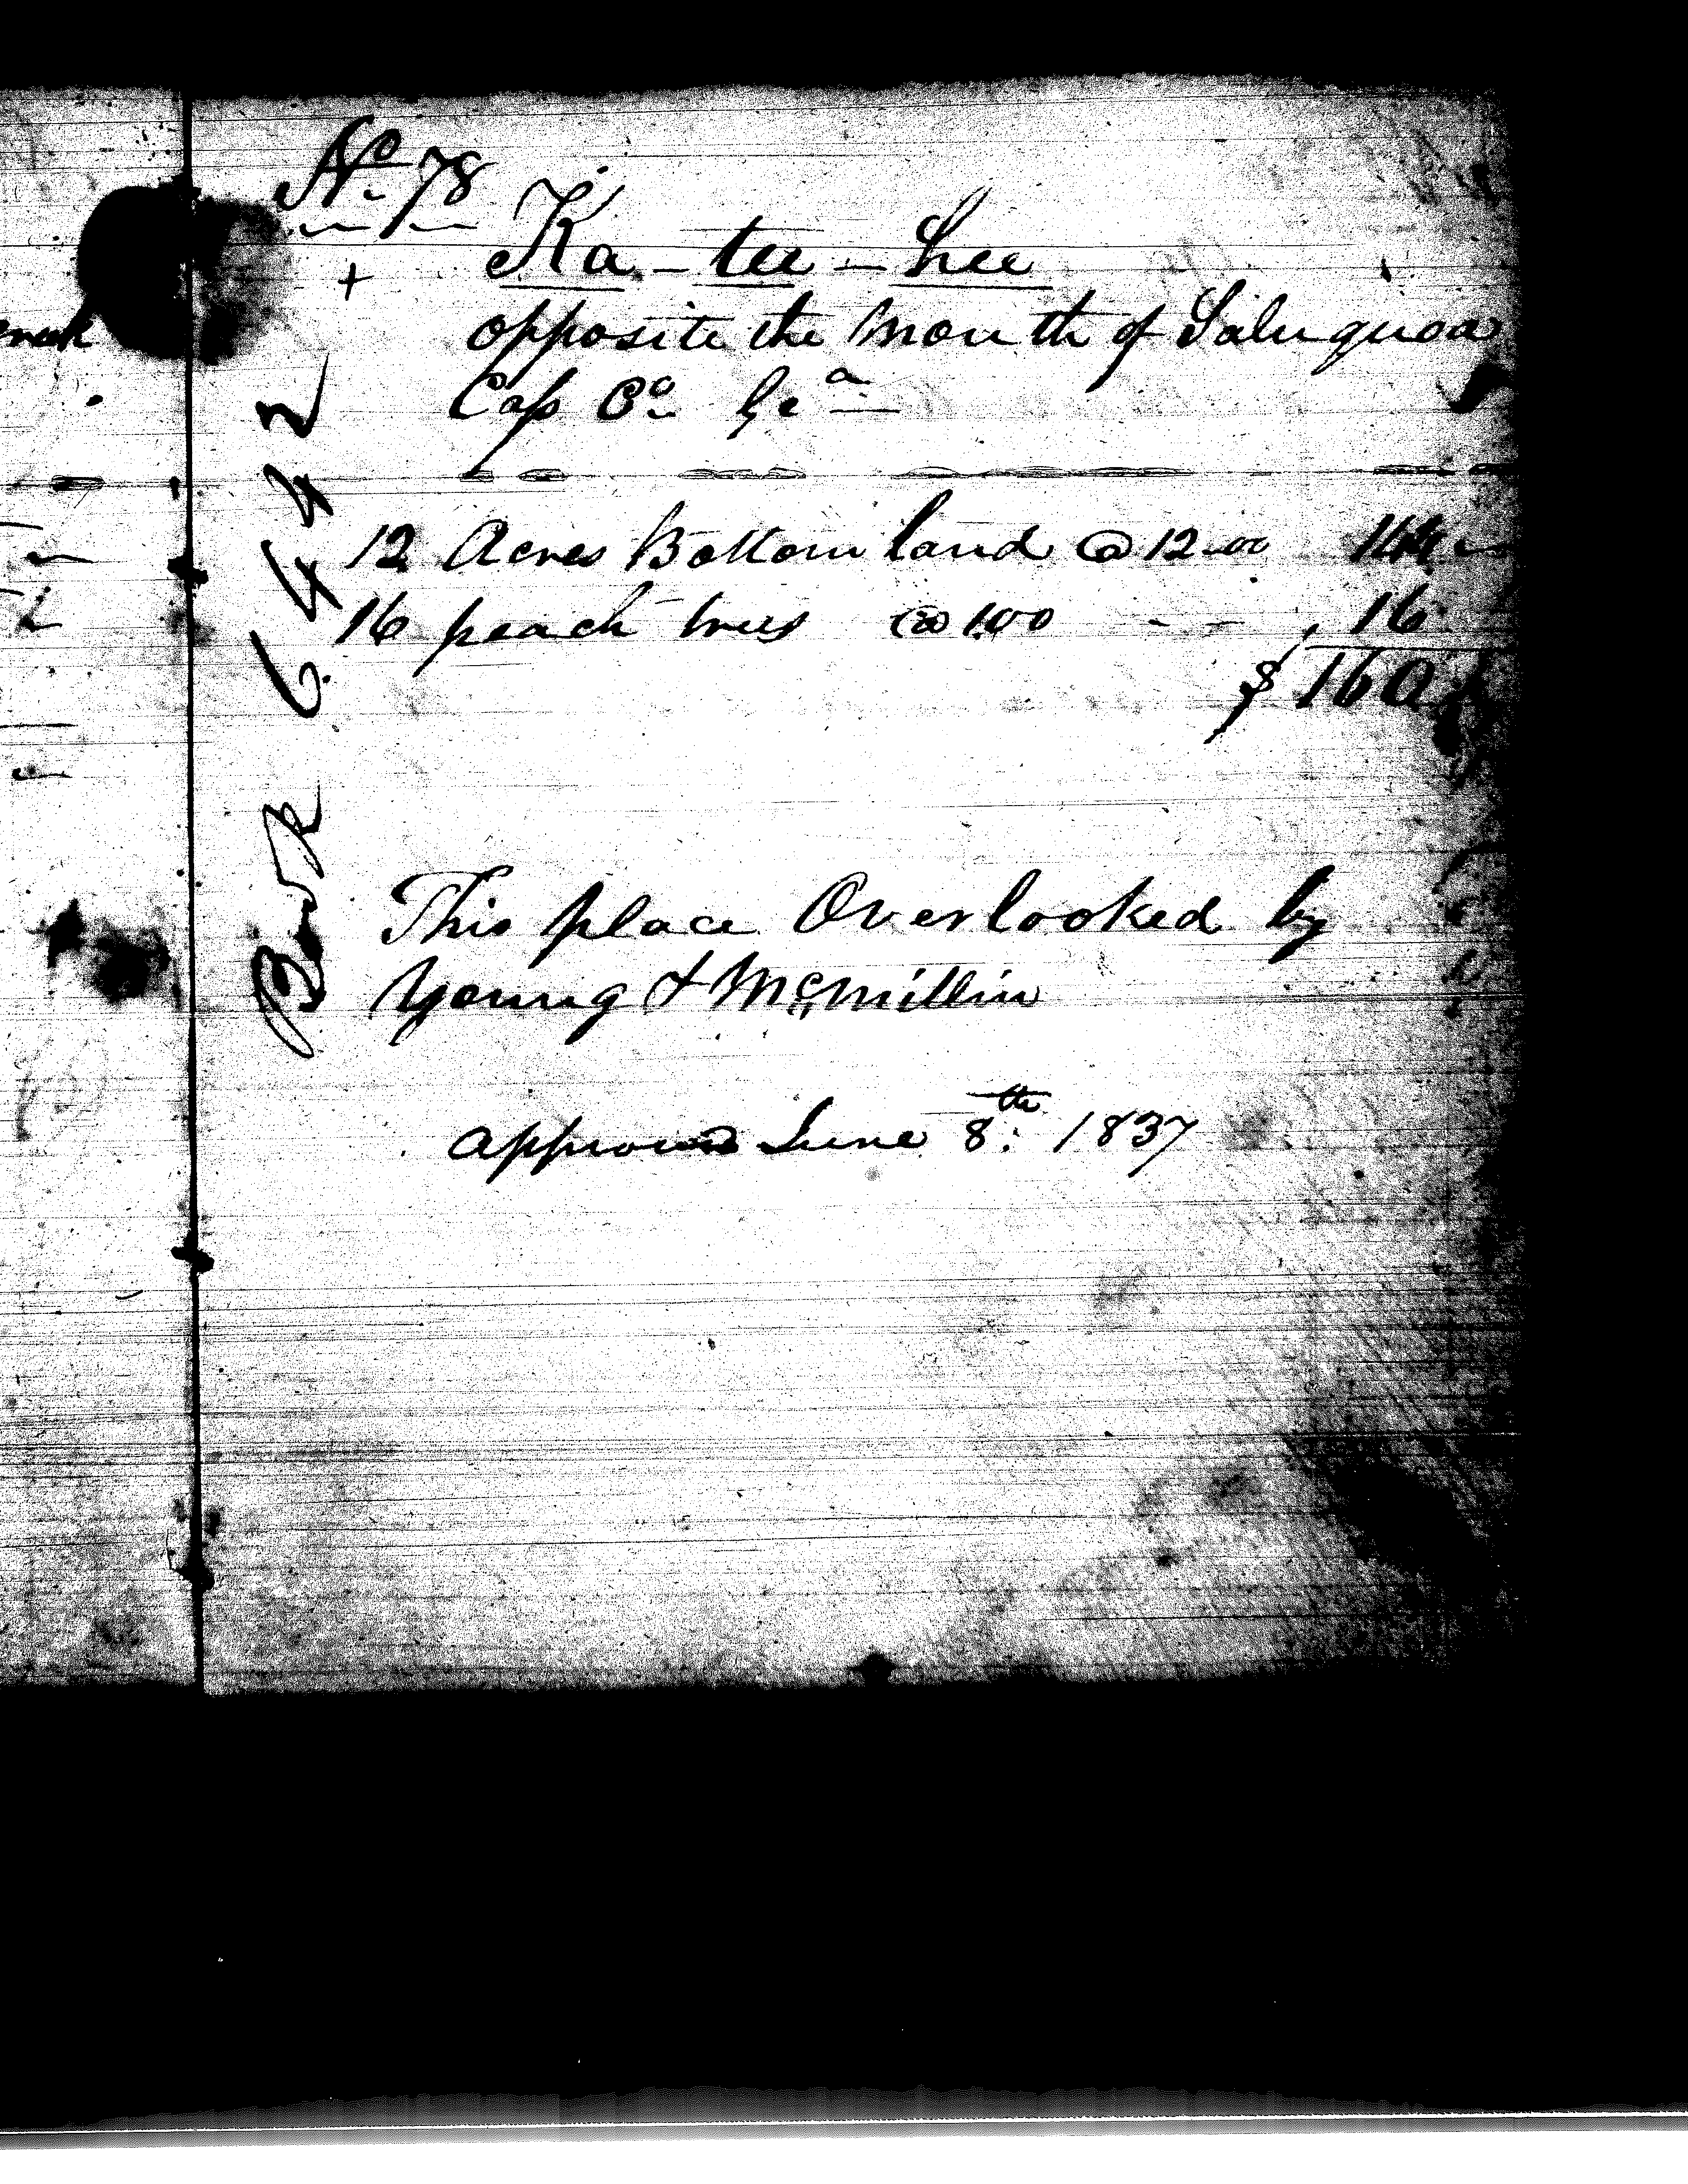 No 78
+ Ka-tee-hee
opposite the Mouth of Saluquoa
Cass Co Gea
12 Acres Bottom land @ 12.00 144
16 peach trees @ 1.00 - - 16
$ 160
This place Overlooked by
Young & McMillin
approved June 8th 1837
Book 6. 442